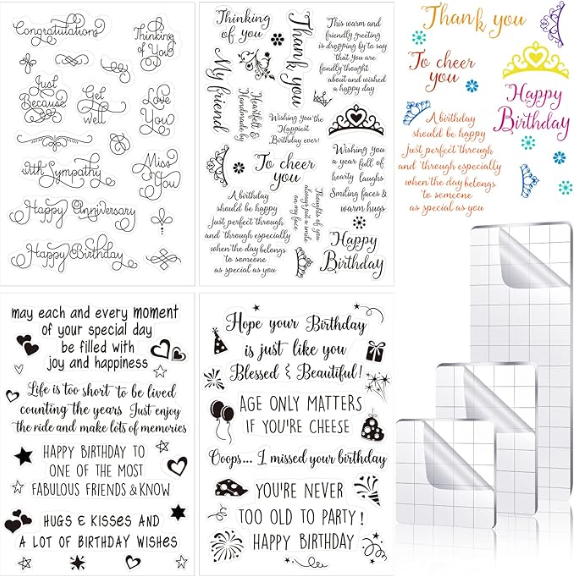 Congratulations
Thinking
of You
Just
Because
Get
well
Love
You
With Sympathy
Miss
You
Happy Anniversary
Happy Birthday
Thinking
of you
Thank you
My friend
Heartfelt &
Handmade by
This warm and
friendly greeting
is dropping by to say
that you are
fondly thought
about and wished
a happy day
Wishing you the
Happiest
Birthday ever!
To cheer
you
Wishing you
a year full of
hearty laughs
Smiling faces &
warm hugs
A birthday
should be happy
Just perfect through
and through especially
when the day belongs
to someone
as special as you
Thoughts of you
always put a smile
on my face
Happy
Birthday
Thank you
To cheer
you
Happy
Birthday
A birthday
should be happy
Just perfect through
and through especially
when the day belongs
to someone
as special as you
may each and every moment
of your special day
be filled with
joy and happiness
Life is too short to be lived
counting the years Just enjoy
the ride and make lots of memories
HAPPY BIRTHDAY TO
ONE OF THE MOST
FABULOUS FRIENDS & KNOW
HUGS & KISSES AND
A LOT OF BIRTHDAY WISHES
Hope your Birthday
is just like you
Blessed & Beautiful!
AGE ONLY MATTERS
IF YOU'RE CHEESE
Oops... I missed your birthday
YOU'RE NEVER
TOO OLD TO PARTY!
HAPPY BIRTHDAY